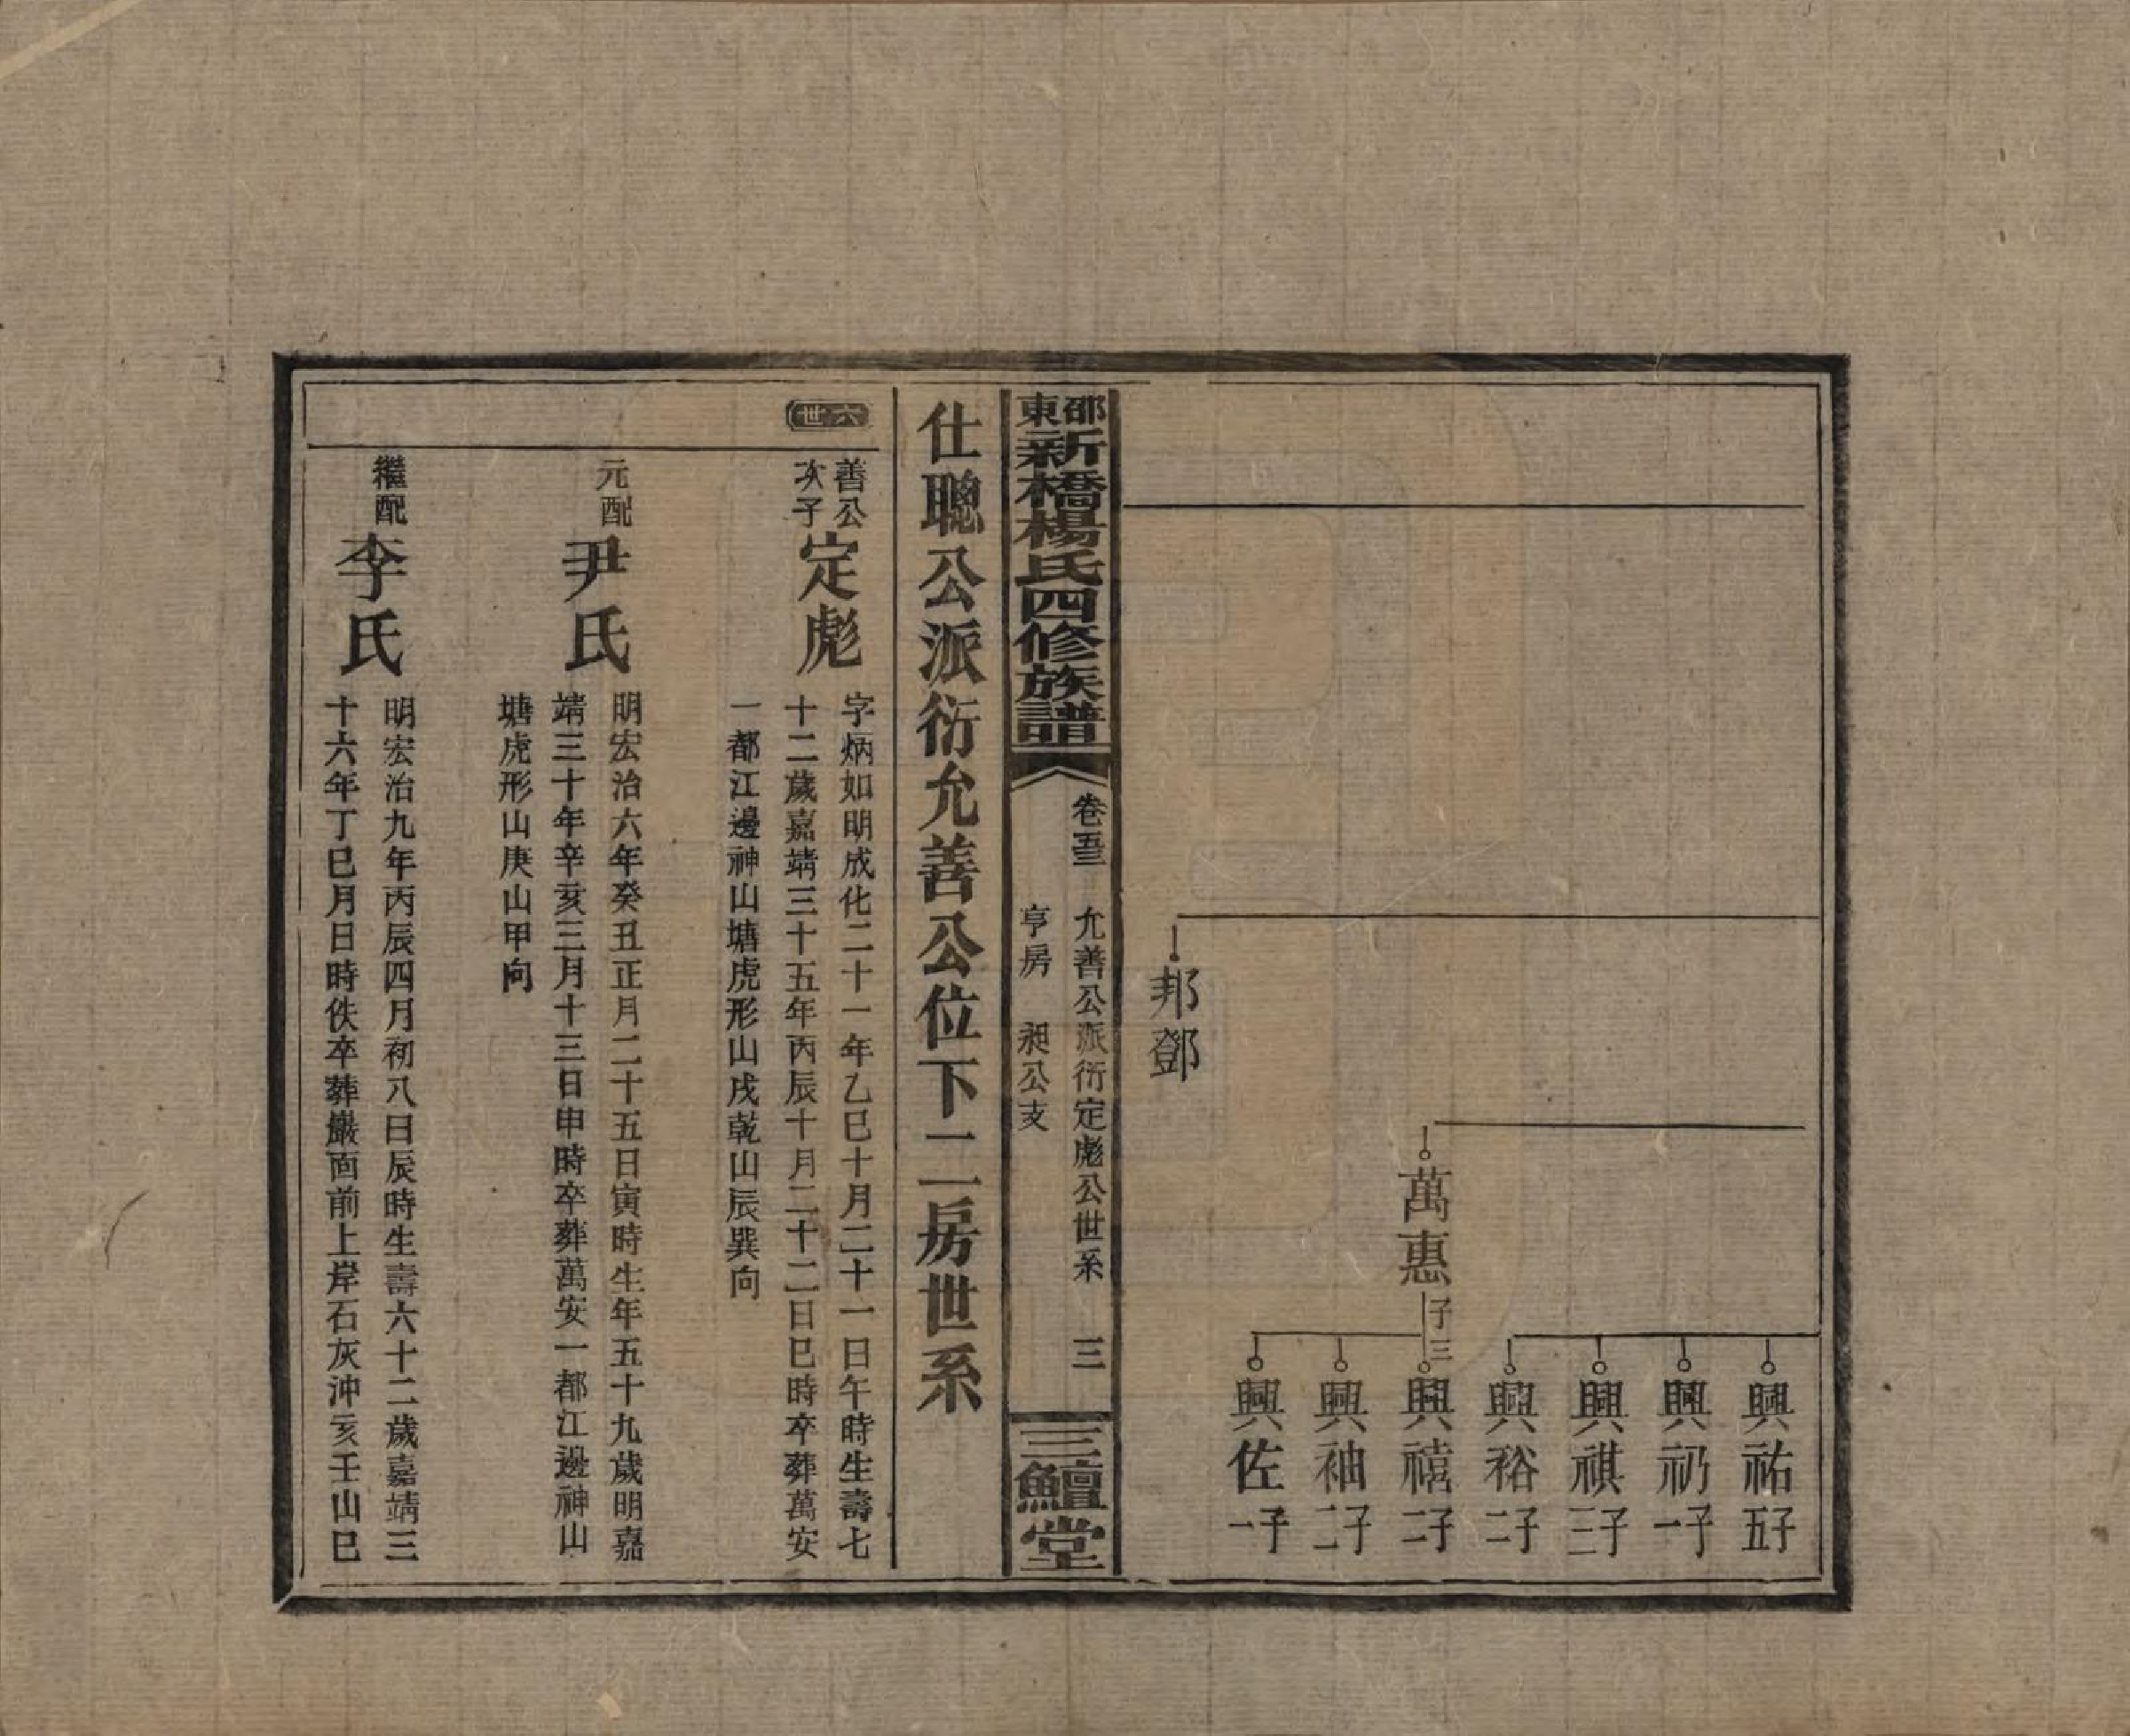 興祐 子五
興礽 子一
興祺 子三
興裕 子二
萬惠 子三
興禧 子二
興袖 子二
興佐 子一
邦鄧
邵東新橋楊氏四修族譜
卷五三 允善公派衍定彪公世系 三
亨房 昶公支
三鱣堂
仕聰公派衍允善公位下二房世系
六世
善公次子 定彪
字炳如明成化二十一年乙巳十月二十一日午時生壽七
十二歲嘉靖三十五年丙辰十月二十二日巳時卒葬萬安
一都江邊神山塘虎形山戌乾山辰巽向
元配 尹氏
明宏治六年癸丑正月二十五日寅時生年五十九歲明嘉
靖三十年辛亥三月十三日申時卒葬萬安一都江邊神山
塘虎形山庚山甲向
繼配 李氏
明宏治九年丙辰四月初八日辰時生壽六十二歲嘉靖三
十六年丁巳月日時佚卒葬巖面前上岸石灰沖亥壬山巳